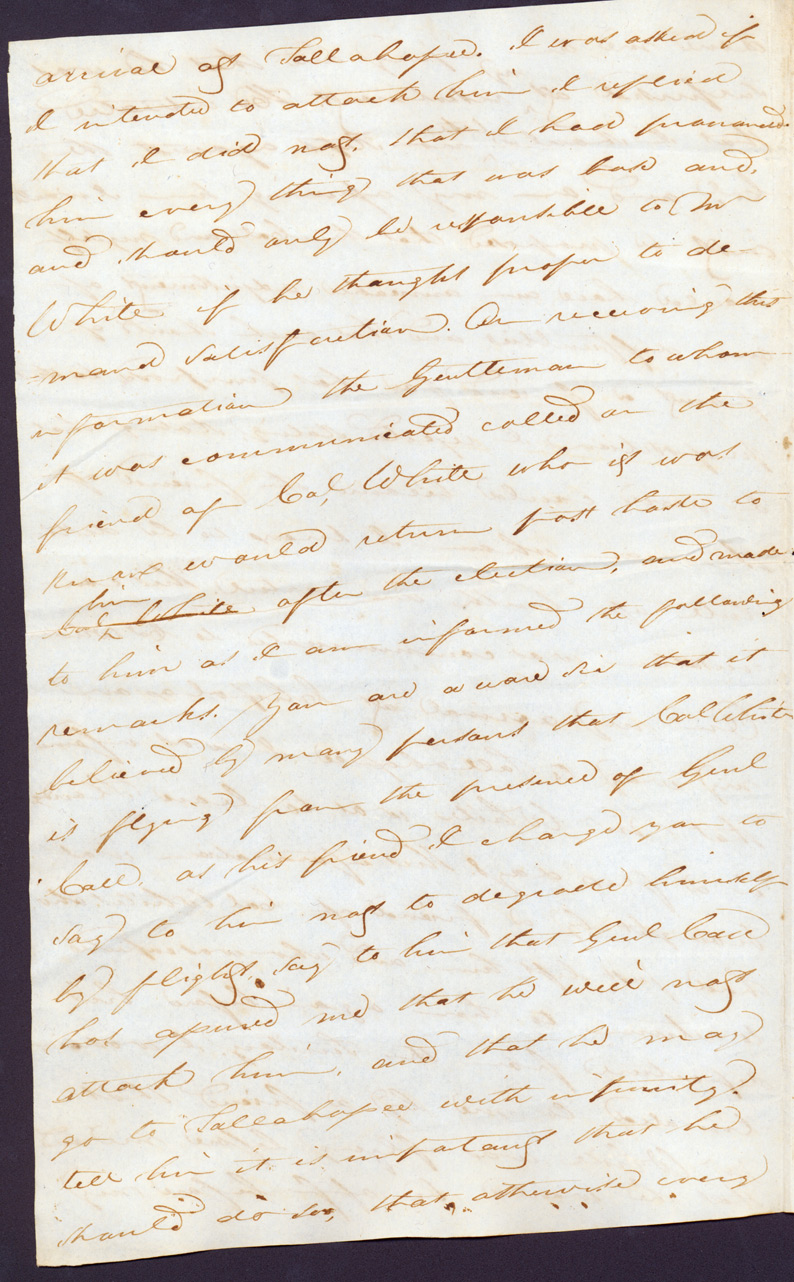 arrival at Tallahassee. I was asked if
I intended to attack him I replied
that I did not, that I had pronounced
him every thing that was base and,
and should only be responsible to Mr
White if he thought proper to de-
-mand satisfaction. On receiving this
information the Gentleman to whom
it was communicated called on the
friend of Col, White who it was
known would return post haste to
him
Col White after the election, and made
to him as I am informed the following
remarks. You are aware Sir that it
believed by many persons that Col White
is flying from the presence of Genl
Call, as his friend I charge you to
say to him not to degrade himself
by flight, say to him that Genl Call
has assured me that he will not
attack him, and that he may
go to Tallahassee with impunity.
tell him it is important that he
should do so, that otherwise every